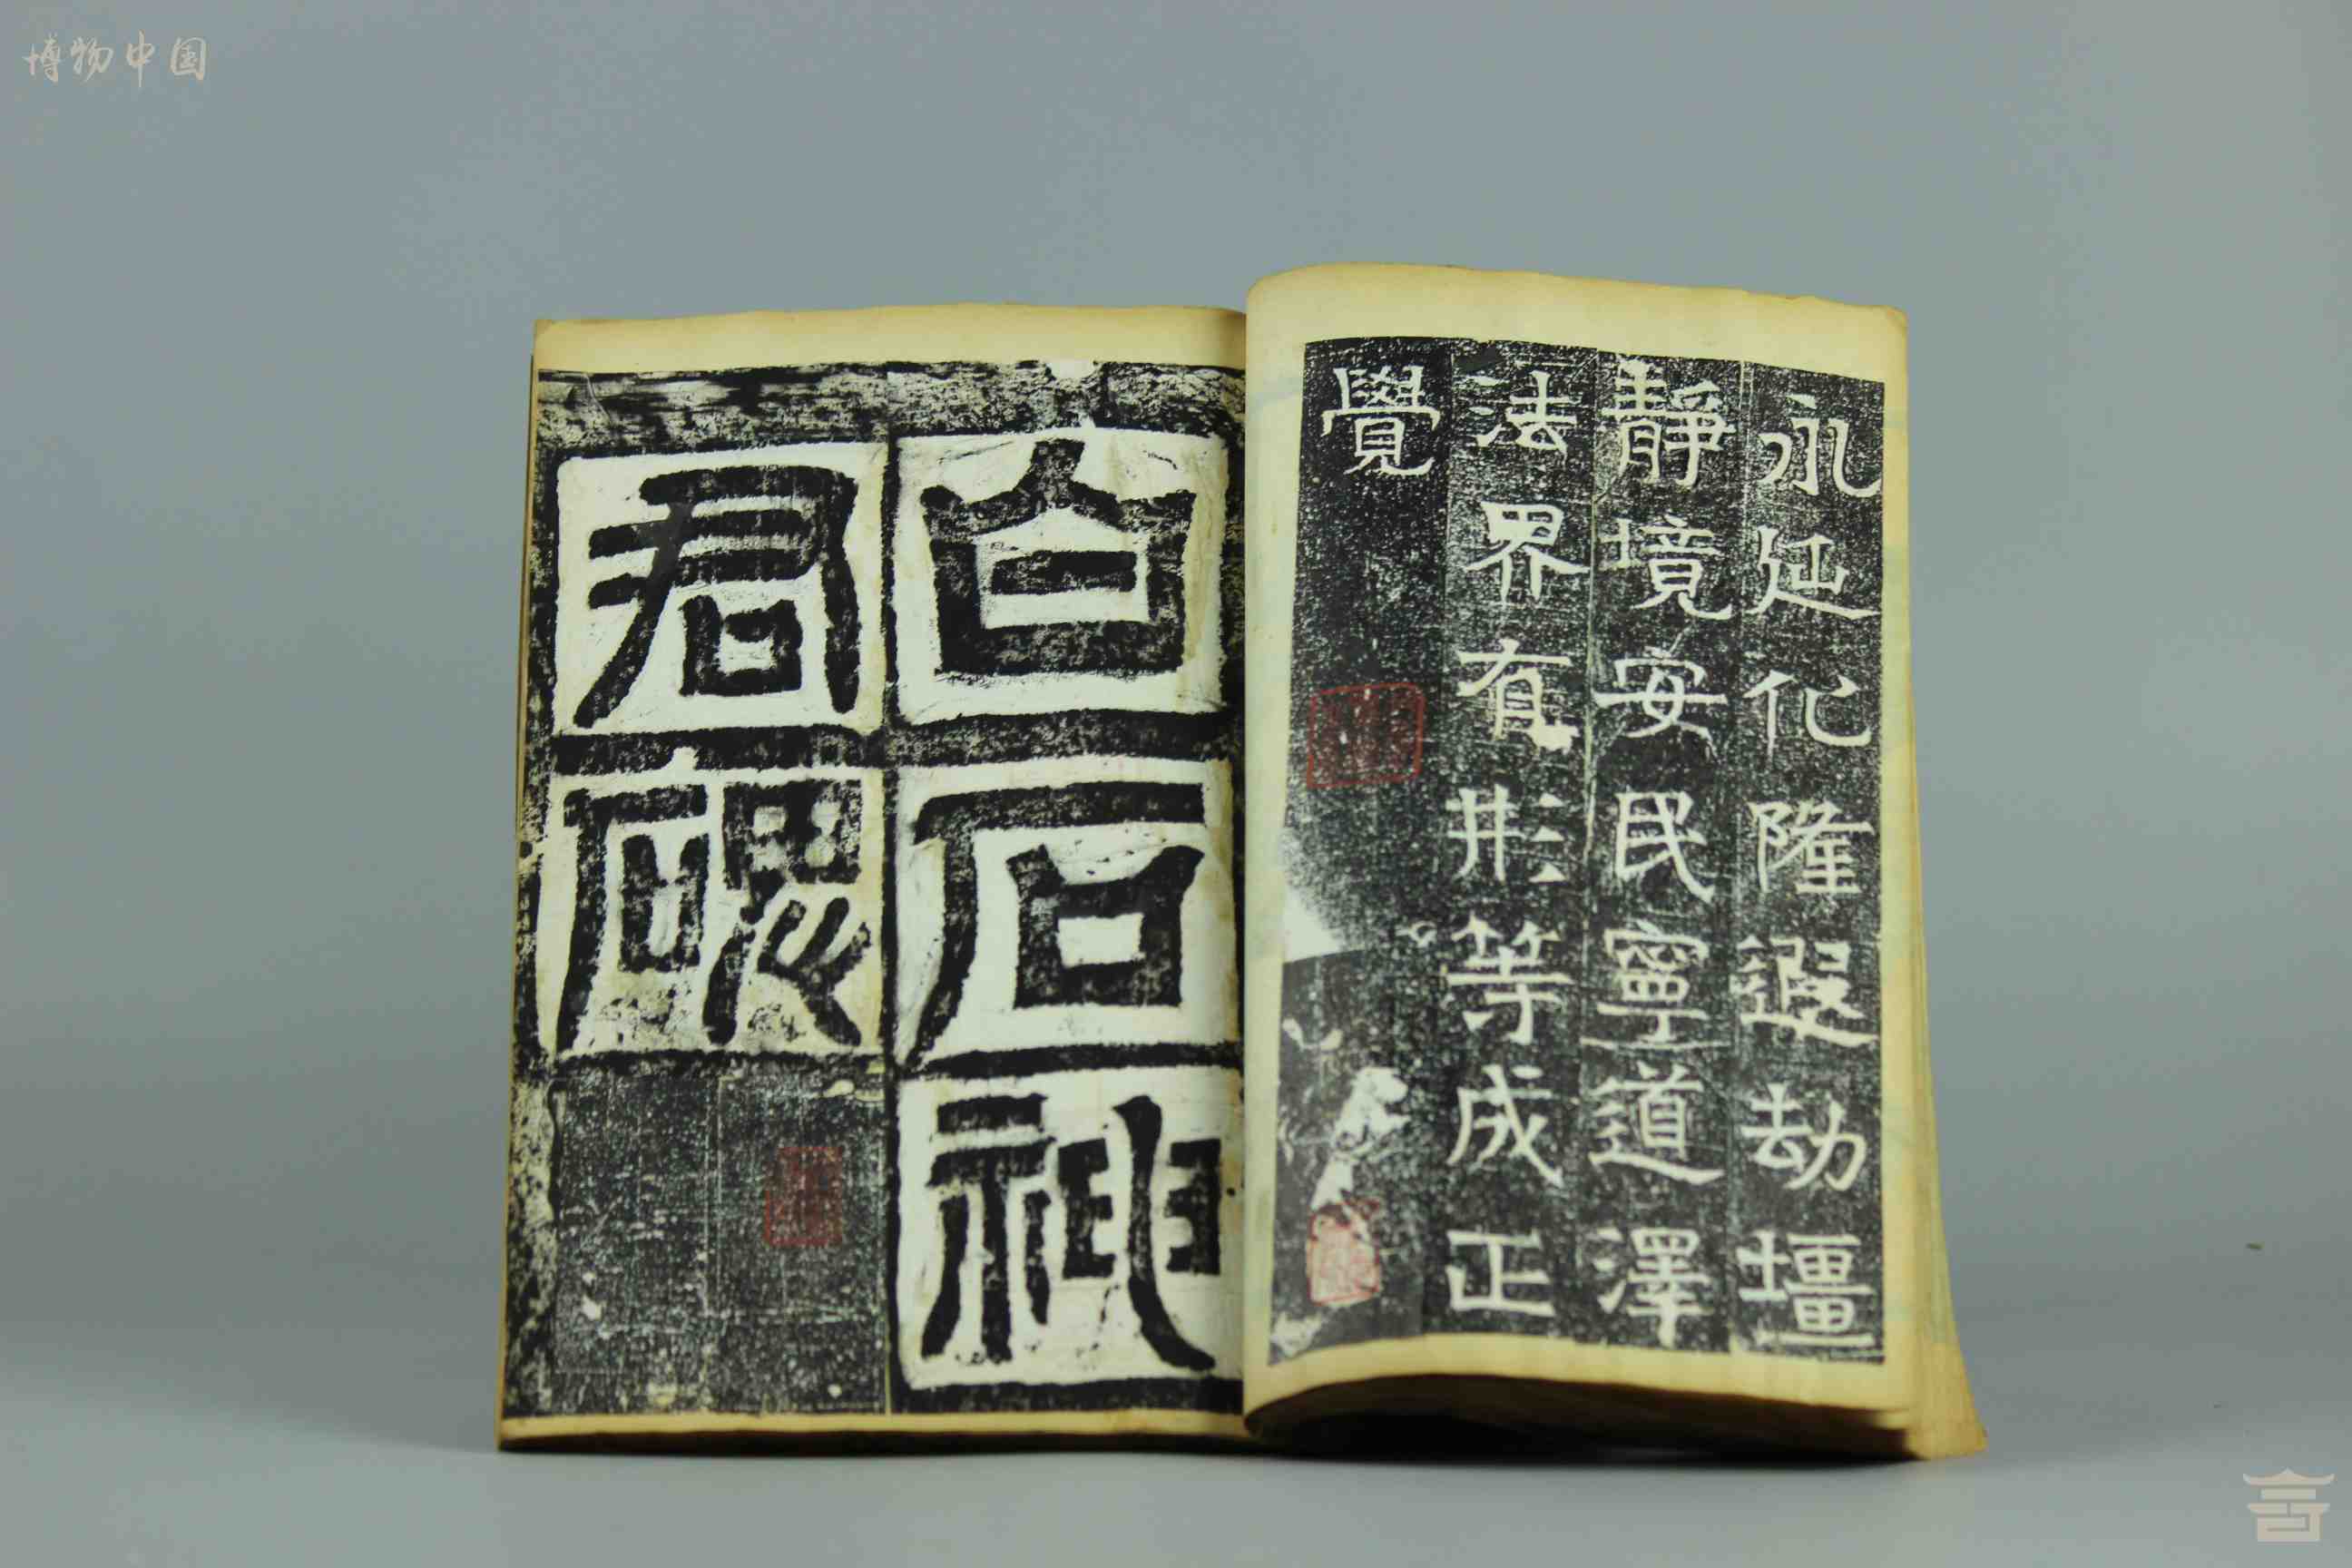 博物中国
永延化隆遐劫壃
靜境安民寧道澤
法界有形等成正
覺
白石神
君碑